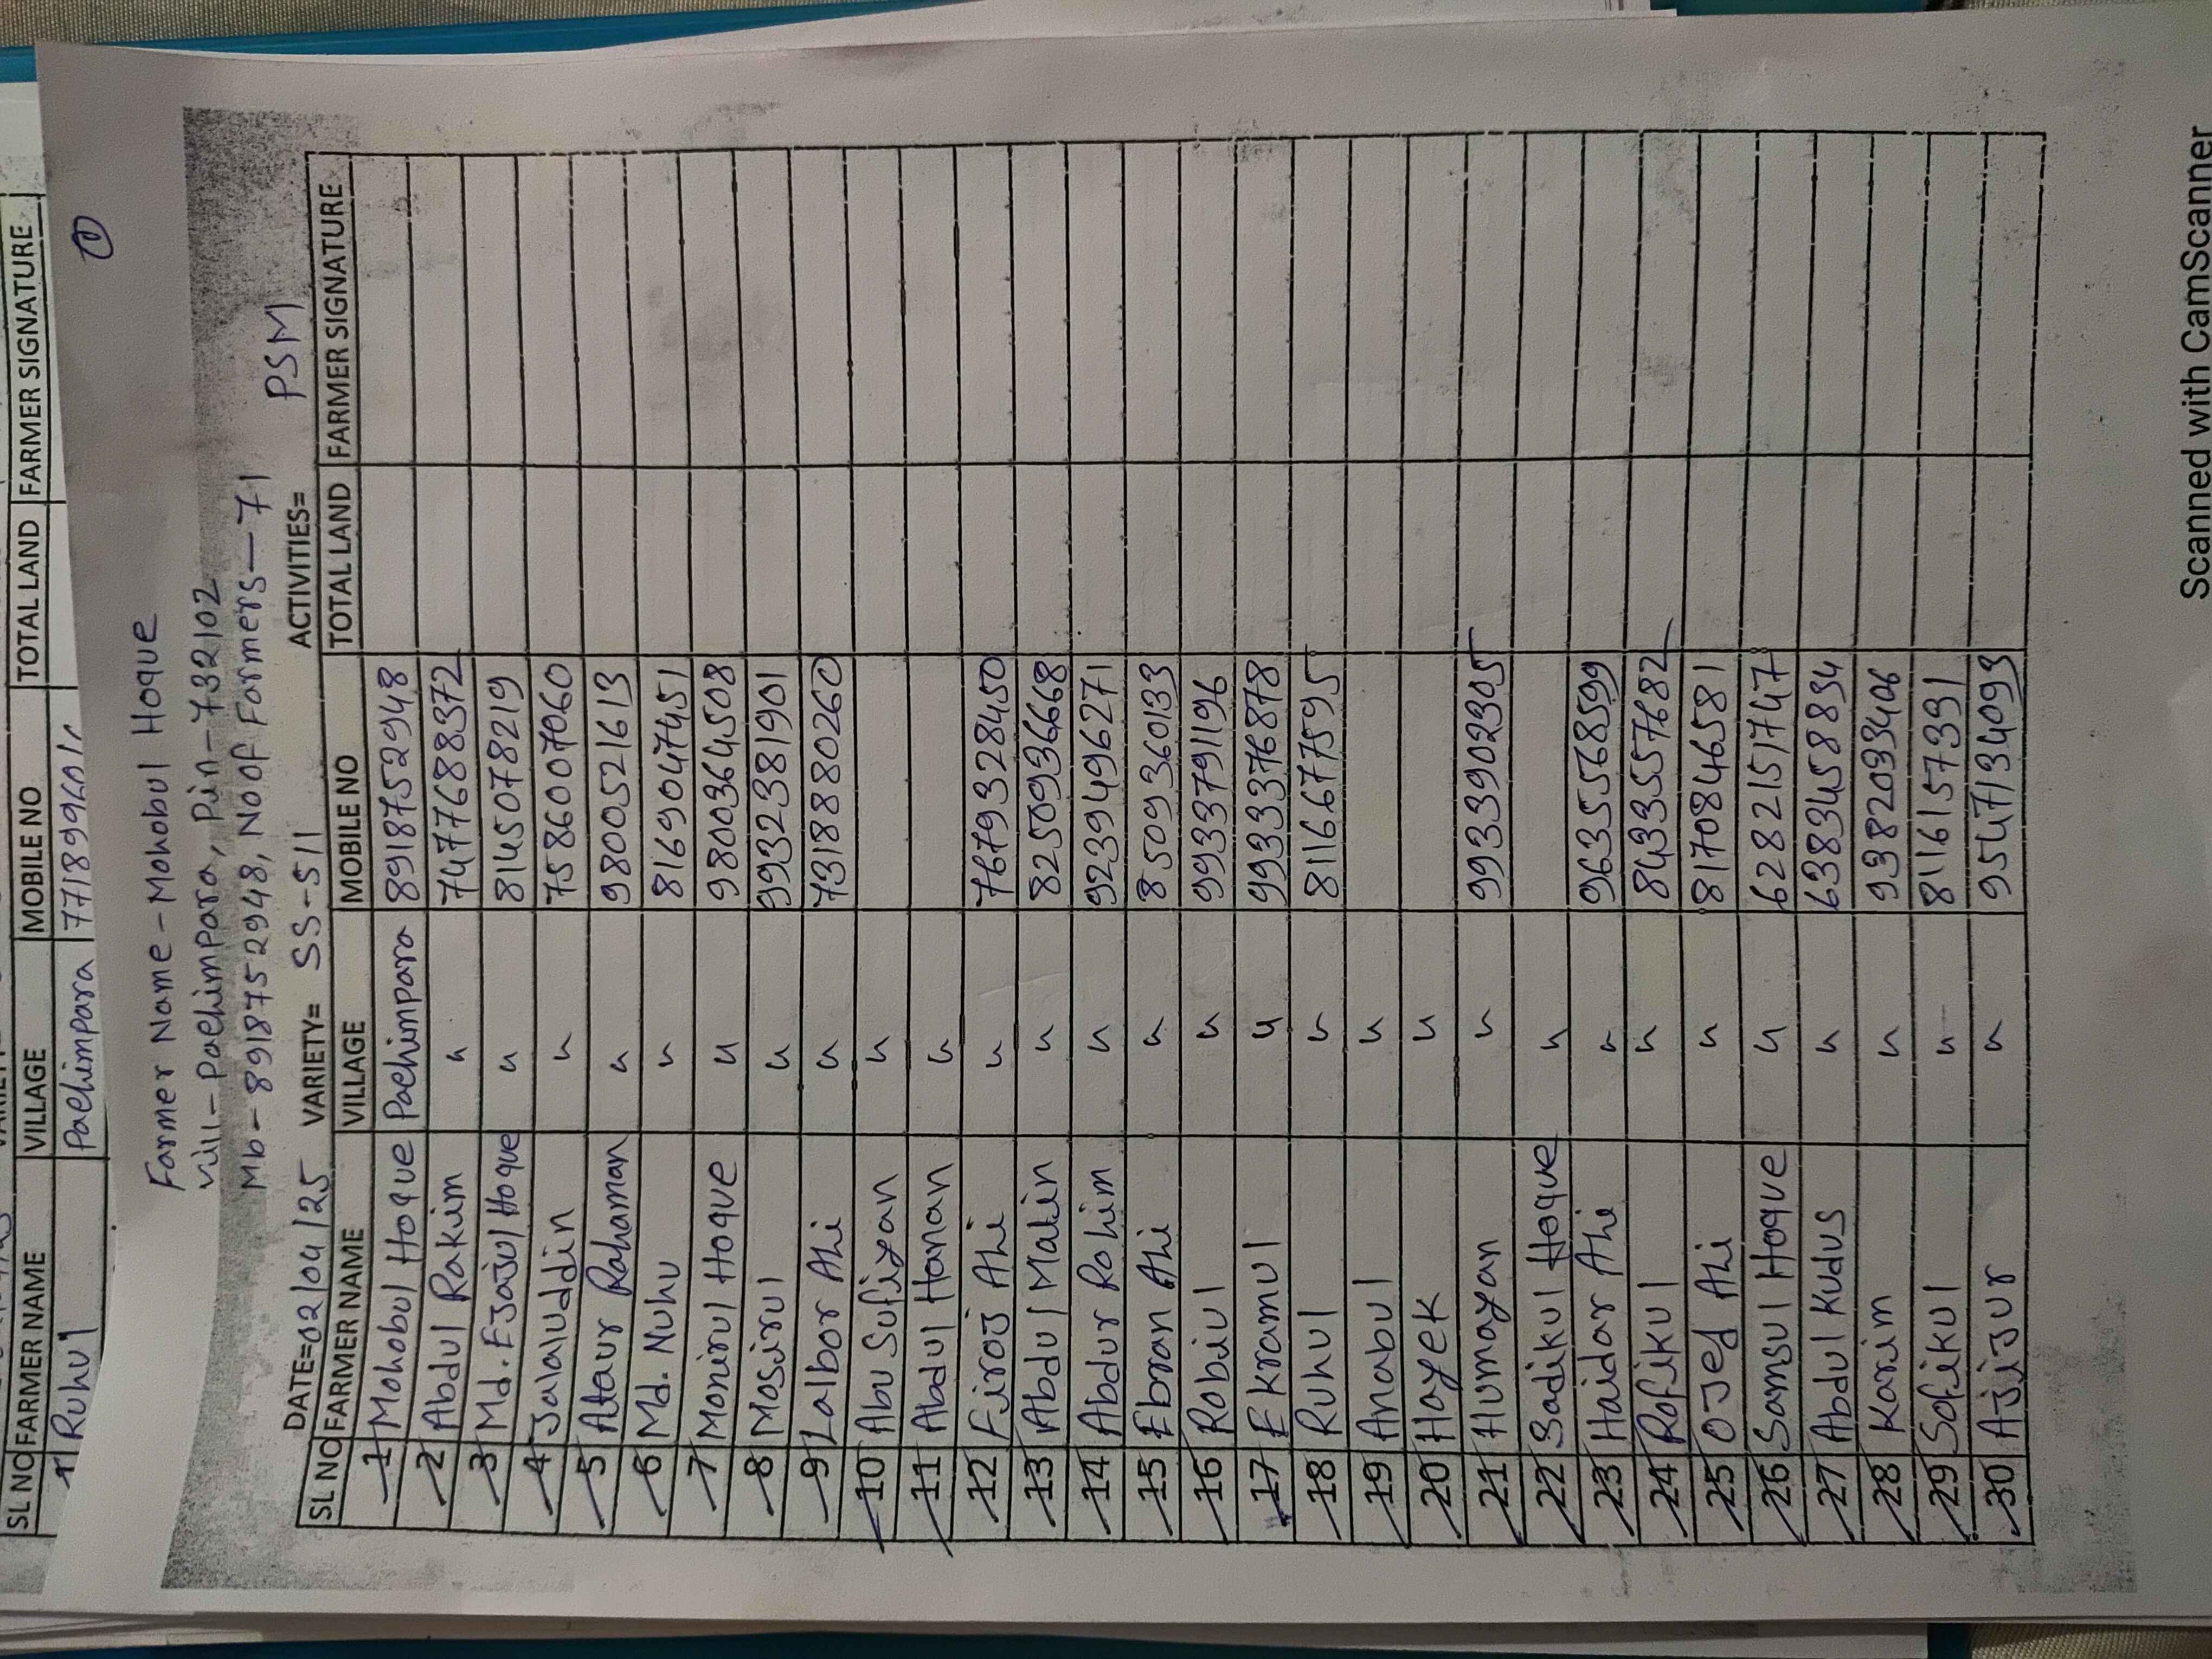 SL NO FARMER NAME VILLAGE MOBILE NO TOTAL LAND FARMER SIGNATURE
1 Ruhul Pachimpara
1
Farmer Name - Mohobul Hoque
Vill - Pachimpara, Pin - 732102
Mb - 8918752948, No of Farmers - 71
DATE=02/04/25 VARIETY= SS-511 ACTIVITIES= PSM
SL NO FARMER NAME VILLAGE MOBILE NO TOTAL LAND FARMER SIGNATURE
1 Mohobul Hoque Pachimpara 8918752948
2 Abdul Rakim " 7477688372
3 Md. Ejajul Hoque " 8145078219
4 Jalaluddin " 7586007060
5 Ataur Rahaman " 9800521613
6 Md. Nuhu " 8169047451
7 Monirul Hoque " 9800364508
8 Mosirul " 9932381901
9 Lalbor Ali " 7318880260
10 Abu Sufiyan "
11 Abdul Hanan "
12 Firoj Ali " 7679328450
13 Abdul Malin " 8250936668
14 Abdur Rohim " 9239496271
15 Ebran Ali " 8509360133
16 Robiul " 9933791196
17 Ekramul " 9933376878
18 Ruhul " 8116677595
19 Anabul "
20 Hayek "
21 Humayan " 9933902345
22 Sadikul Hoque "
23 Haidar Ali " 9635568599
24 Rofikul " 8433557682
25 Ojed Ali " 8170846581
26 Samsul Hoque " 6282151747
27 Abdul Kudus " 6383458834
28 Karim " 9382033406
29 Sofikul " 8116157391
30 Ajijur " 9547134093
Scanned with CamScanner